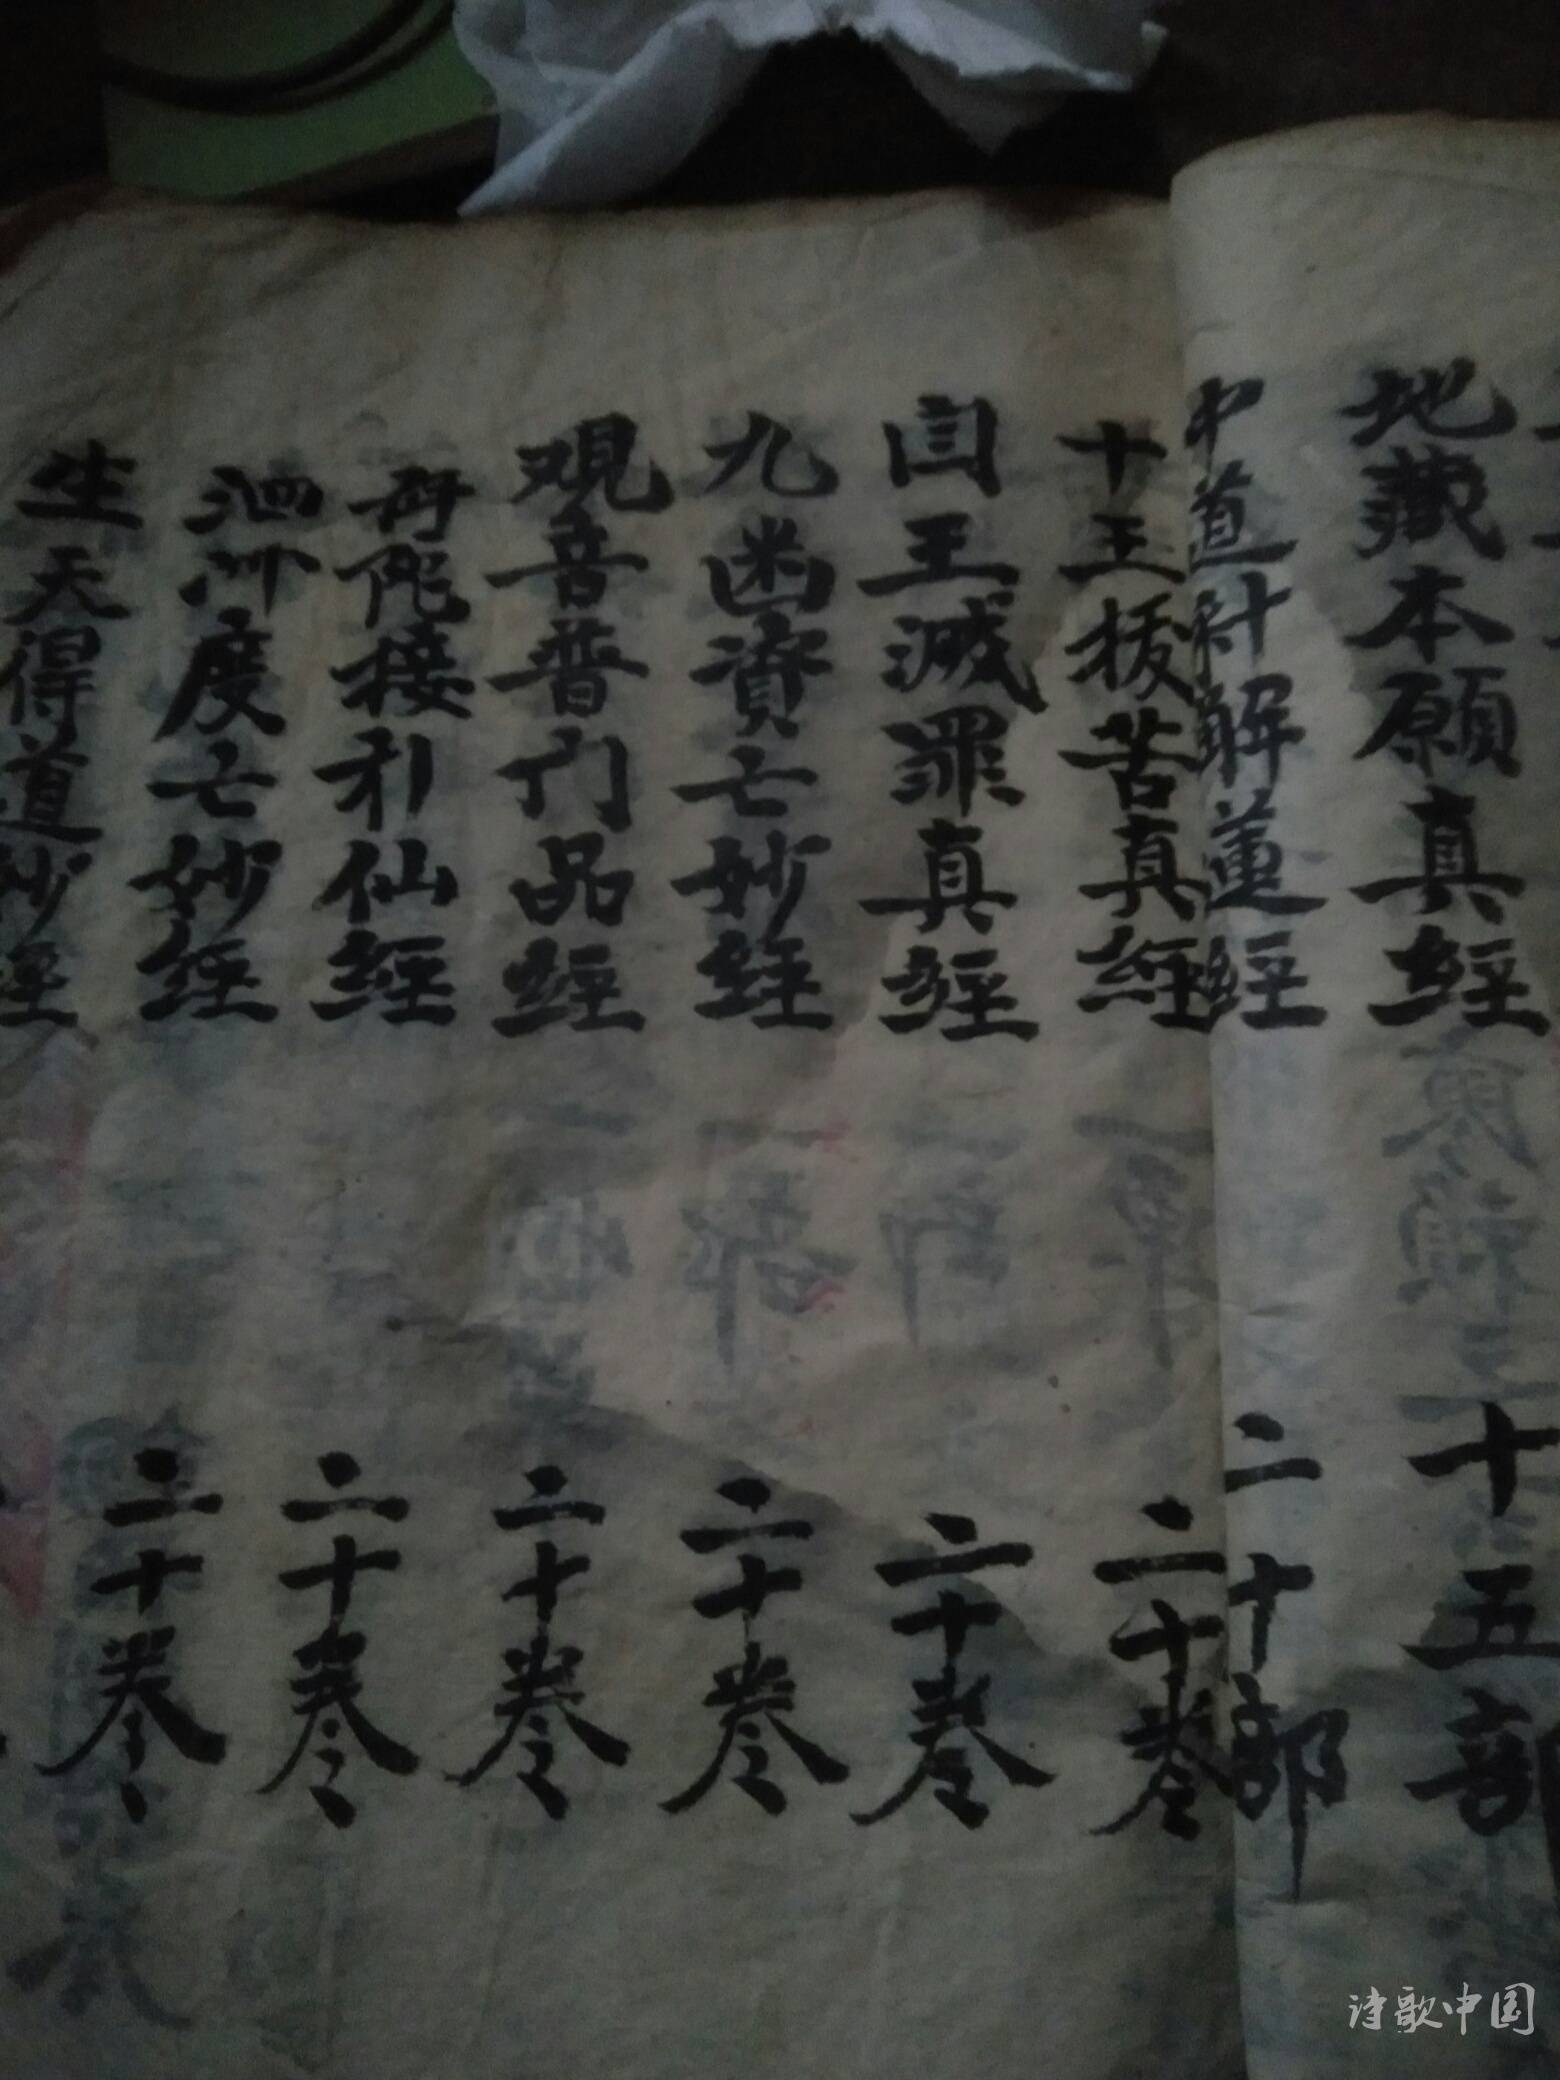 地藏本願真經 十五部
中道
解
經 二十部
十王拔苦真經 二十卷
王滅罪真經 二十卷
九幽資亡妙經 二十卷
观音普门品經 二十卷
陀接引仙經 二十卷
泗洲度亡妙經 二十卷
生天得道妙經
诗歌中国